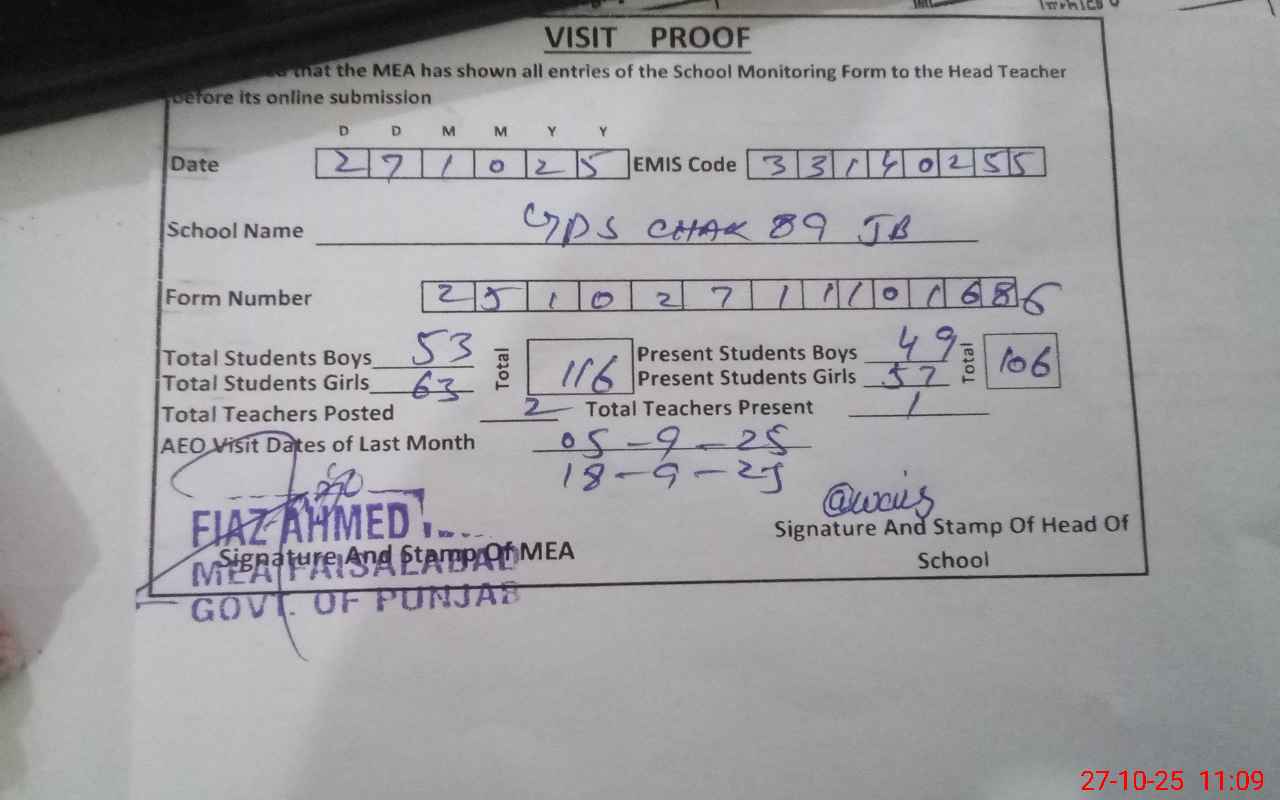 VISIT PROOF
that the MEA has shown all entries of the School Monitoring Form to the Head Teacher
before its online submission
D D M M Y Y
Date 2 7 1 0 2 5 EMIS Code 3 3 1 4 0 2 5 5
School Name GPS CHAK 89 JB
Form Number 2 5 1 0 2 7 1 1 1 0 1 6 8 6
Total Students Boys 53 Total 116 Present Students Boys 49 Total 106
Total Students Girls 63 Present Students Girls 57
Total Teachers Posted 2 Total Teachers Present 1
AEO Visit Dates of Last Month 05-9-25
18-9-25
@wais
FIAZ AHMED
Signature And Stamp Of MEA
Signature And Stamp Of Head Of
School
MEA FAISALABAD
GOVT. OF PUNJAB
27-10-25 11:09